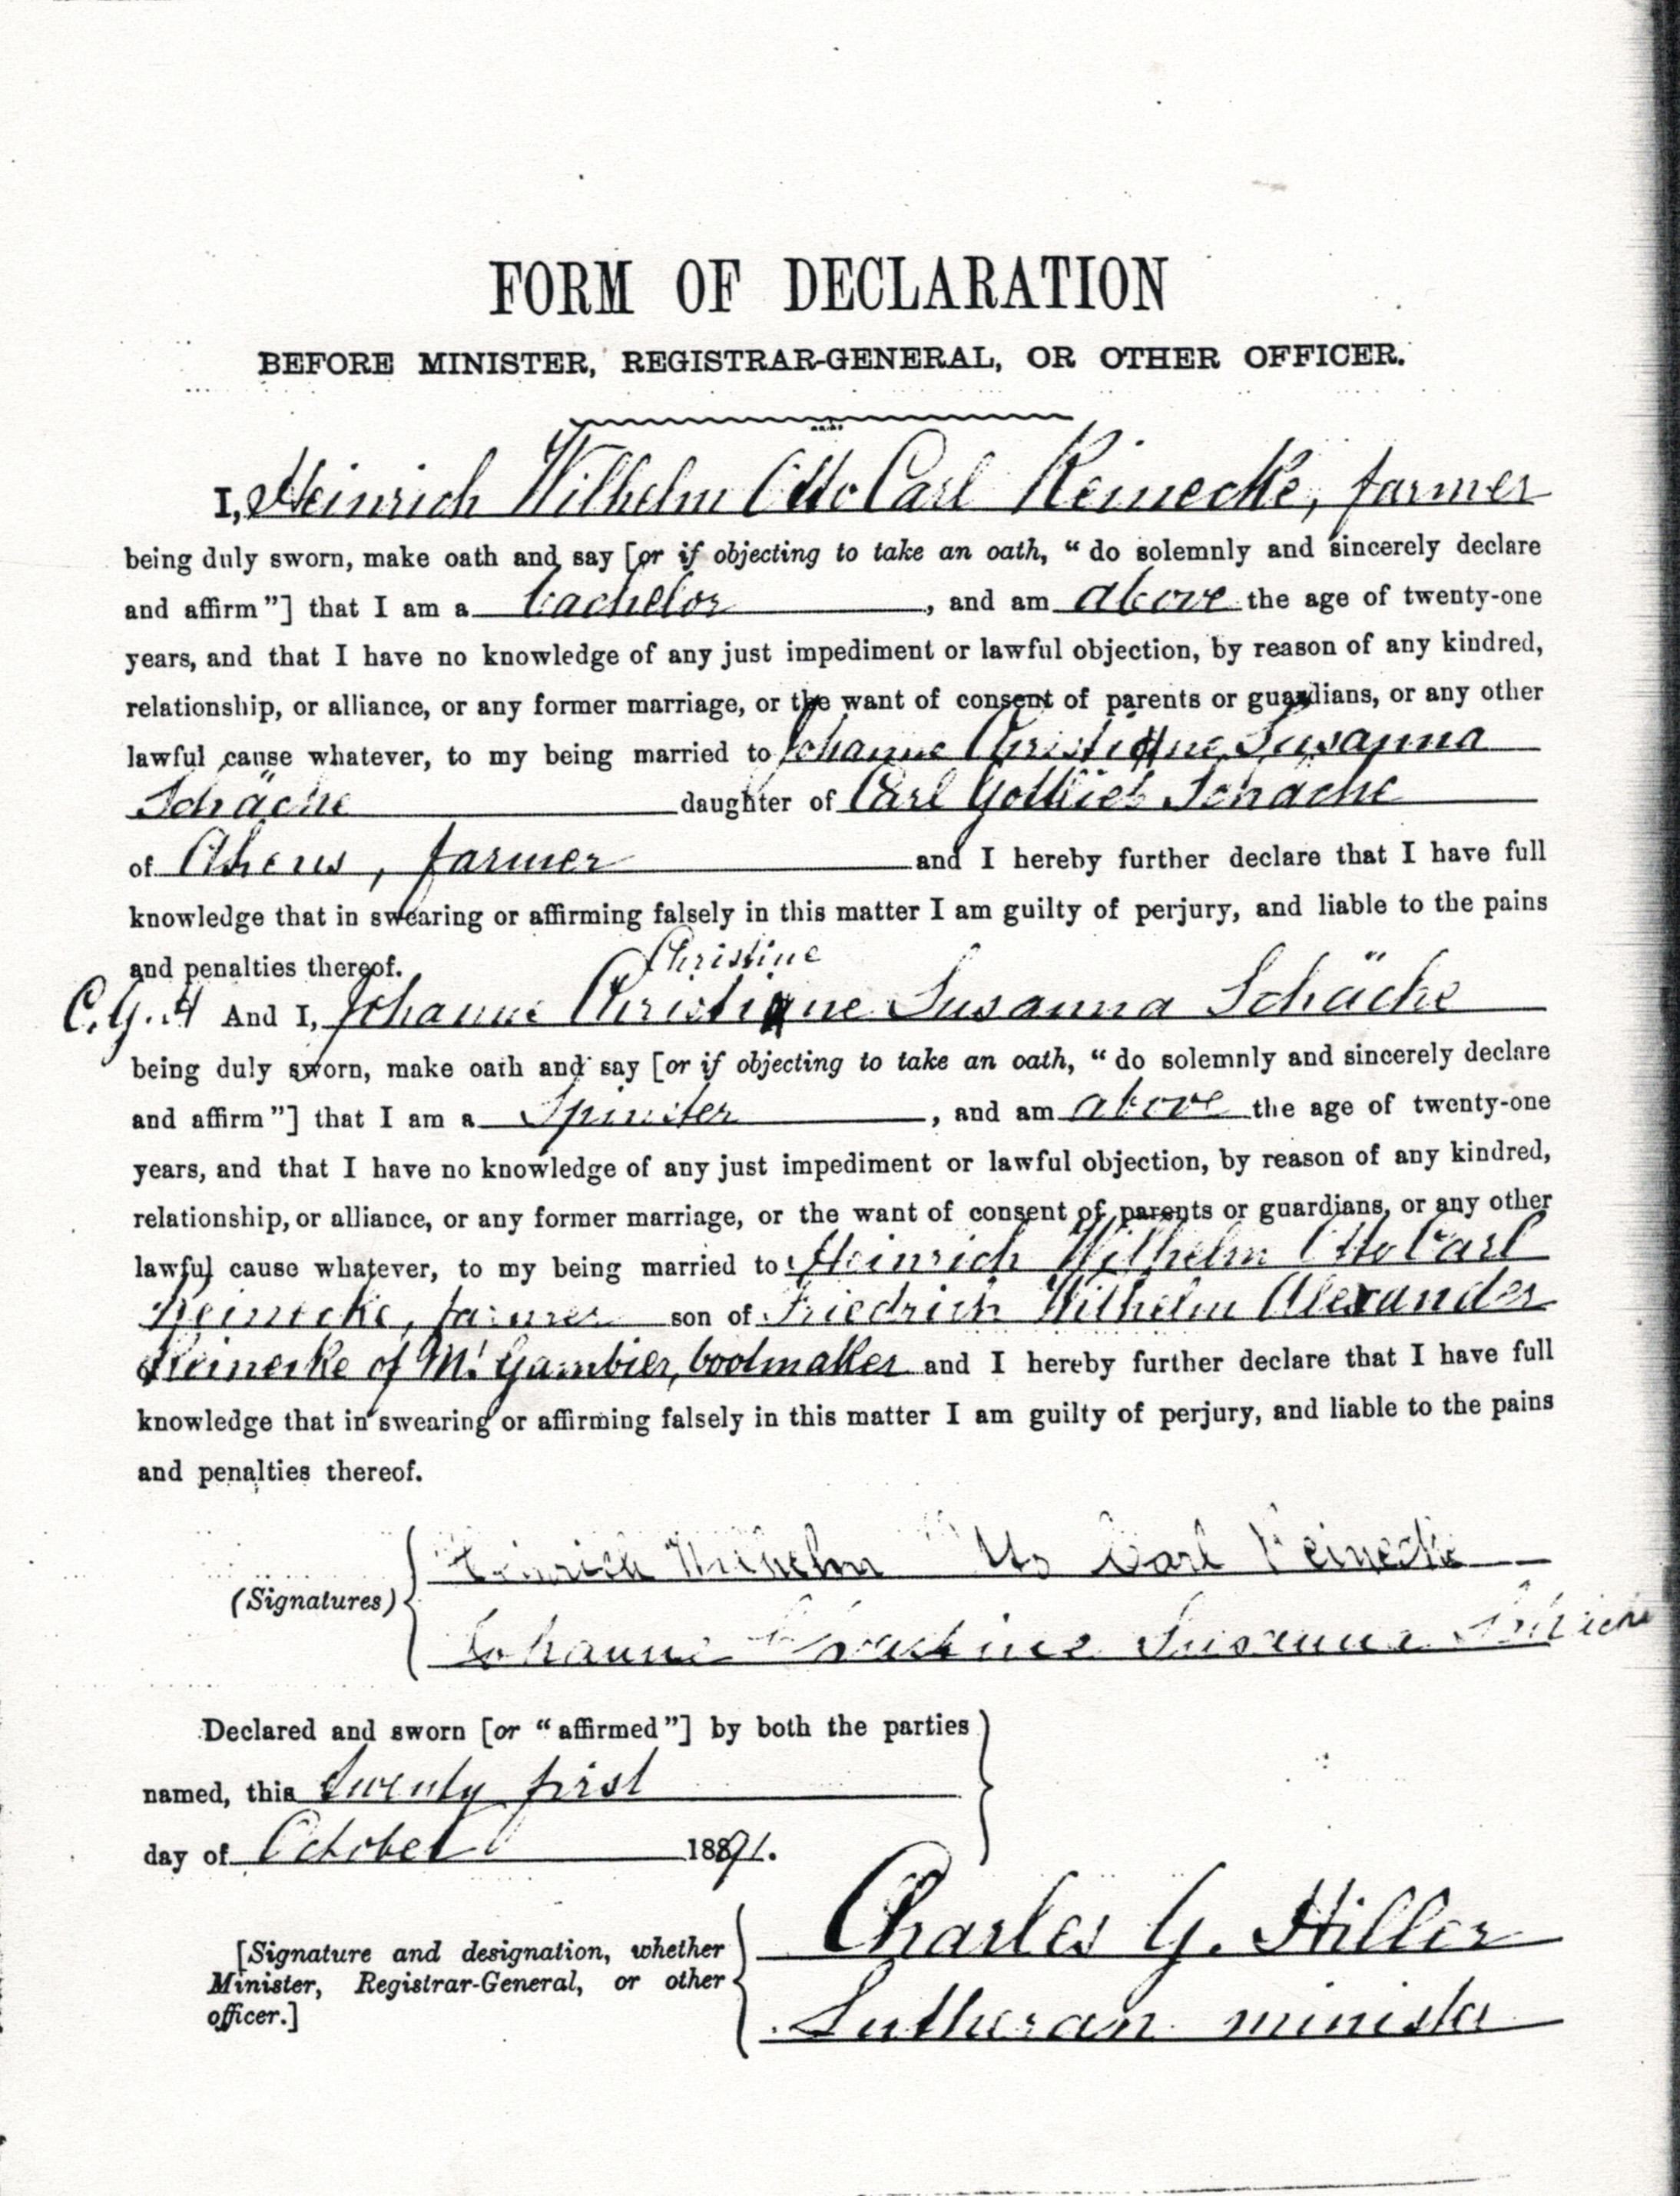 FORM OF DECLARATION
BEFORE MINISTER, REGISTRAR-GENERAL, OR OTHER OFFICER.
I, Heinrich Wilhelm Otto Carl Reinecke, farmer
being duly sworn, make oath and say [or if objecting to take an oath, “do solemnly and sincerely declare
and affirm”] that I am a bachelor, and am above the age of twenty-one
years, and that I have no knowledge of any just impediment or lawful objection, by reason of any kindred,
relationship, or alliance, or any former marriage, or the want of consent of parents or guardians, or any other
lawful cause whatever, to my being married to Johanne Christine Susanna
Schäche daughter of Carl Gottlieb Schäche
of farmer and I hereby further declare that I have full
knowledge that in swearing or affirming falsely in this matter I am guilty of perjury, and liable to the pains
and penalties thereof.
Christine
C.G.H And I, Johanne Christiane Susanna Schäche
being duly sworn, make oath and say [or if objecting to take an oath, “do solemnly and sincerely declare
and affirm”] that I am a Spinster, and am above the age of twenty-one
years, and that I have no knowledge of any just impediment or lawful objection, by reason of any kindred,
relationship, or alliance, or any former marriage, or the want of consent of parents or guardians, or any other
lawful cause whatever, to my being married to Heinrich Wilhelm Otto Carl
Reinecke, farmer son of Friedrich Wilhelm Alexander
Reinecke of Mt Gambier, bootmaker and I hereby further declare that I have full
knowledge that in swearing or affirming falsely in this matter I am guilty of perjury, and liable to the pains
and penalties thereof.
(Signatures) Heinrich Wilhelm Otto Carl Reinecke
Johanne Christine Susanna Schäche
Declared and sworn [or “affirmed”] by both the parties
named, this twenty first
day of October 1891.
[Signature and designation, whether Minister, Registrar-General, or other officer.]
Charles G. Hiller
Lutheran minister